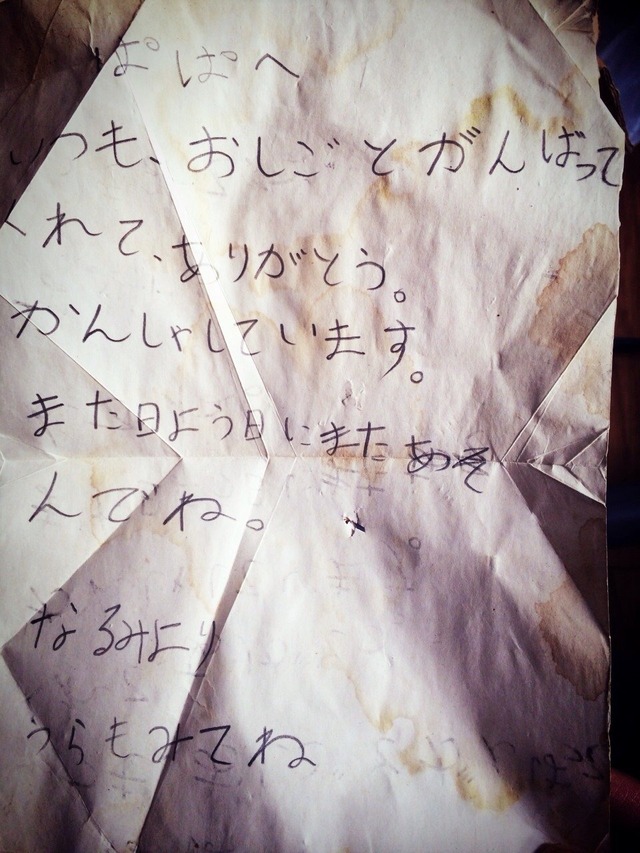 ぱぱへ
いつも、おしごとがんばって
くれて、ありがとう。
かんしゃしています。
また日よう日にまたあそ
んでね。
なるみより
うらもみてね